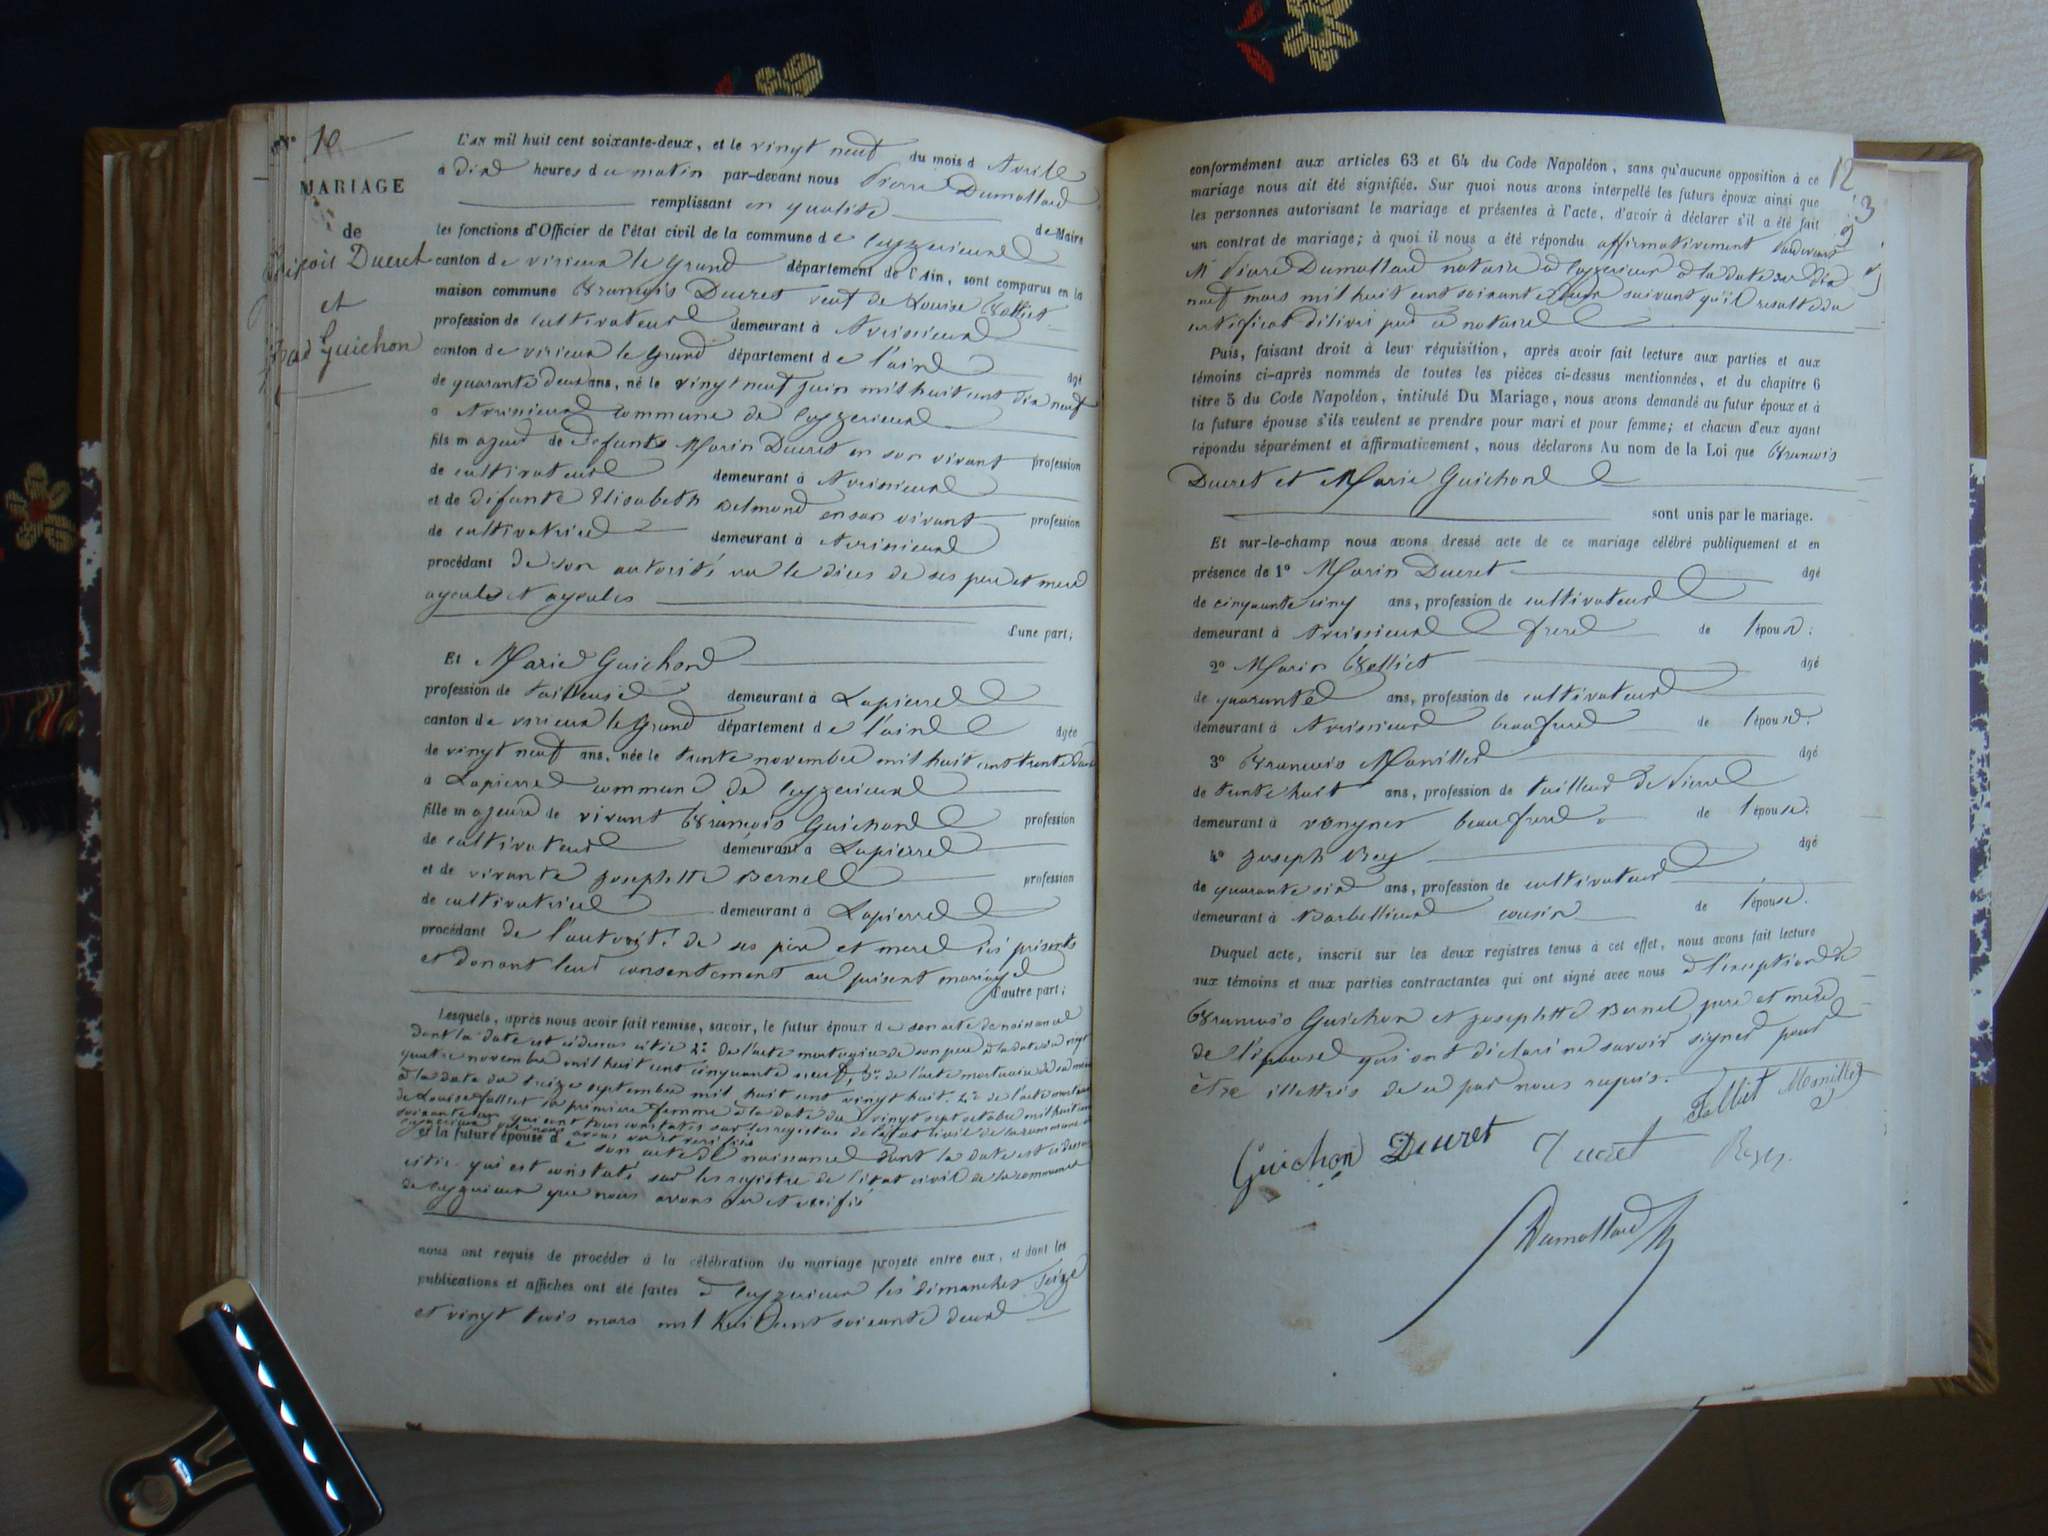 N° 10
MARIAGE
de
François Ducret
et
Guichon
L'AN mil huit cent soixante-deux, et le vingt neuf du mois d Avrile
à dix heures du matin par-devant nous Pierre Dumollard
remplissant en qualité de Maire
les fonctions d'Officier de l'état civil de la commune de Ceyzerieux
canton de virieux le Grand département de l'Ain, sont comparus en la
maison commune François Ducret veuf de Louise Folliet
profession de cultivateur demeurant à Avrissieux
canton de virieux le Grand département de l'ain âgé
de quarante deux ans, né le vingt neuf juin mil huit cent dix neuf
à Avrissieux commune de Ceyzerieux
fils majeur de defunts Marin Ducret en son vivant profession
de cultivateur demeurant à Avrissieux
et de défunte Elisabeth Belmond en son vivant profession
de cultivatrice demeurant à Avrissieux
procédant de son autorité vu le dices de ses pere et mere
ayeuls et ayeules
d'une part;
Et Marie Guichon
profession de tailleuse demeurant à Lapierre
canton de virieux le Grand département de l'ain âgée
de vingt neuf ans, née le trente novembre mil huit cent trente deux
à Lapierre commune de Ceyzerieux
fille majeure de vivant François Guichon profession
de cultivateur demeurant à Lapierre
et de vivante Josephtte Bernel profession
de cultivatrice demeurant à Lapierre
procédant de l'autorité de ses père et mere ici présents
et donant leur consentement au présent mariage
d'autre part;
Lesquels, après nous avoir fait remise, savoir, le futur époux de son acte de naissance
dont la date est cidessus citée 2° de l'acte mortuaire de son pere à la date du vingt
quatre novembre mil huit cent cinquante neuf, 3° de l'acte mortuaire de sa mere
à la date du treize septembre mil huit cent vingt huit. 4° de l'acte mortuaire
de Louise Folliet sa premiere femme à la date du vingt sept octobre mil huit cent
soixante un qui sont tous constatés sur les registres de l'état civil de la commune de
Ceyzerieux que nous avons vu et verifiés
et la future épouse de son acte de naissance dont la date est cidessus
citée qui est constaté sur les registre de l'état civil de la commune
de Ceyzerieux que nous avons vu et verifié
nous ont requis de procéder à la célébration du mariage projeté entre eux, et dont les
publications et affiches ont été faites à Ceyzerieux les dimanches seize
et vingt trois mars mil huit cent soixante deux
12
conformément aux articles 63 et 64 du Code Napoléon, sans qu'aucune opposition à ce
mariage nous ait été signifiée. Sur quoi nous avons interpellé les futurs époux ainsi que
les personnes autorisant le mariage et présentes à l'acte, d'avoir à déclarer s'il a été fait
un contrat de mariage; à quoi il nous a été répondu affirmativement pardevant
Me Pierre Dumollard notaire à Ceyzerieux à la date du dix
neuf mars mil huit cent soixante deux suivant qu'il resulte du
certificat délivré par ce notaire
Puis, faisant droit à leur réquisition, après avoir fait lecture aux parties et aux
témoins ci-après nommés de toutes les pièces ci-dessus mentionnées, et du chapitre 6
titre 5 du Code Napoléon, intitulé Du Mariage, nous avons demandé au futur époux et à
la future épouse s'ils veulent se prendre pour mari et pour femme; et chacun d'eux ayant
répondu séparément et affirmativement, nous déclarons Au nom de la Loi que François
Ducret et Marie Guichon
sont unis par le mariage.
Et sur-le-champ nous avons dressé acte de ce mariage célébré publiquement et en
présence de 1° Marin Ducret âgé
de cinquante cinq ans, profession de cultivateur
demeurant à Avrissieux frere de l'époux;
2° Marin Folliet âgé
de quarante ans, profession de cultivateur
demeurant à Avrissieux beaufrere de l'époux;
3° François Monillet âgé
de trente huit ans, profession de tailleur de Pierre
demeurant à vongnes beaufrere de l'épouse;
4° Joseph Rey âgé
de quarante six ans, profession de cultivateur
demeurant à Barbellieux cousin de l'épouse.
Duquel acte, inscrit sur les deux registres tenus à cet effet, nous avons fait lecture
aux témoins et aux parties contractantes qui ont signé avec nous à l'exception de
François Guichon et Josephtte Bernel pere et mere
de l'épouse qui ont déclaré ne savoir signer pour
être illettrés de ce par nous requis.
Folliet Monillet
Guichon Ducret Ducret Rey
Dumollard